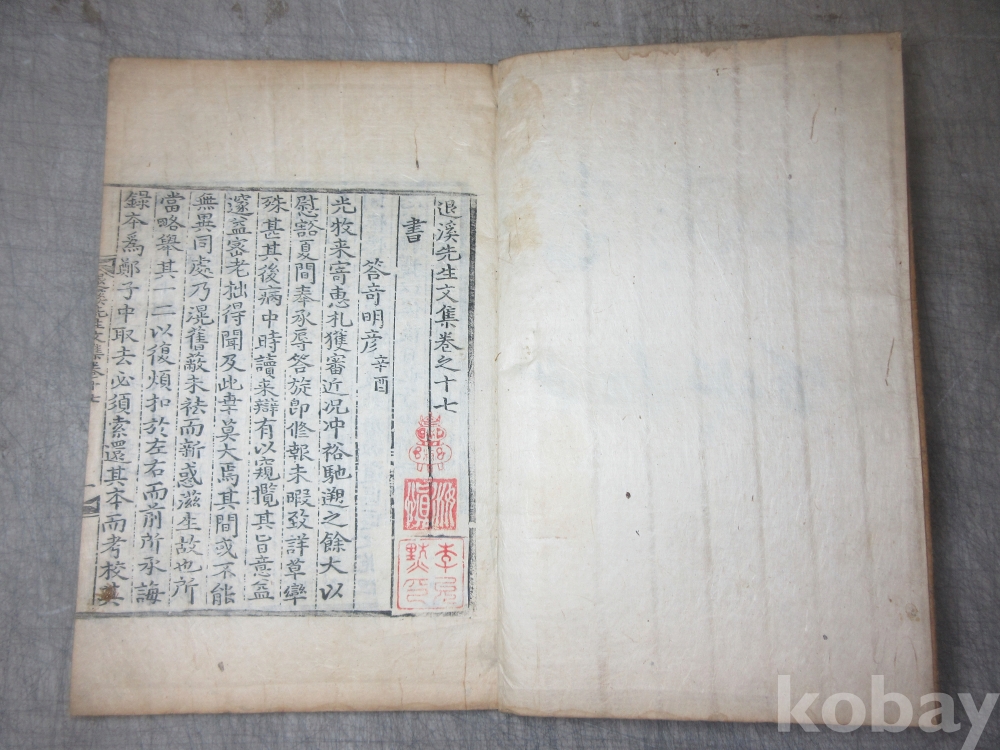 退溪先生文集卷之十七
書
答奇明彦 辛酉
光牧来寄惠札獲審近况冲裕馳遡之餘大以
慰豁夏間奉承辱答旋即修報未暇致詳草率
殊甚其後病中時讀来辯有以窺攬其旨意益
邃益密老拙得聞及此幸莫大焉其間或不能
無異同處乃滉舊蔽未祛而新惑滋生故也所
當略舉其一二以復煩扣於左右而前所承誨
錄本爲鄭子中取去必須索還其本而考校其
kobay